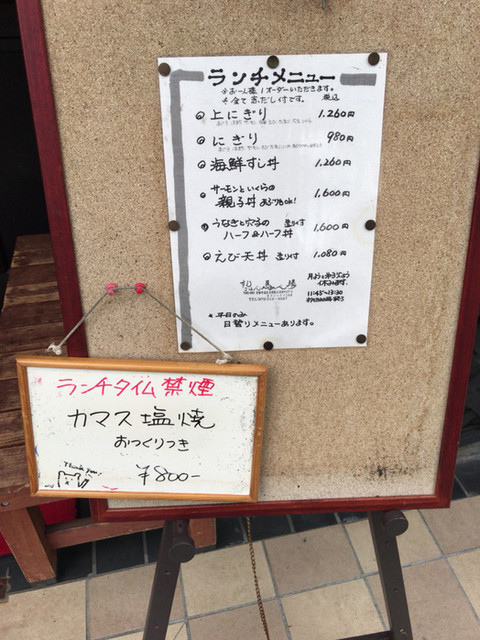 ランチメニュー
※お一人様1オーダーいただきます。
税込
上にぎり 1,260円
にぎり 980円
海鮮すし丼 1,260円
サーモンといくらの
親子丼 あぶりもok! 1,600円
うなぎと穴子の
ハーフ&ハーフ丼 1,600円
えび天丼 1,080円
11:45~13:30
*平日のみ
日替りメニューあります。
ランチタイム禁煙
カマス塩焼
おつくりつき
Thank you!
¥800-